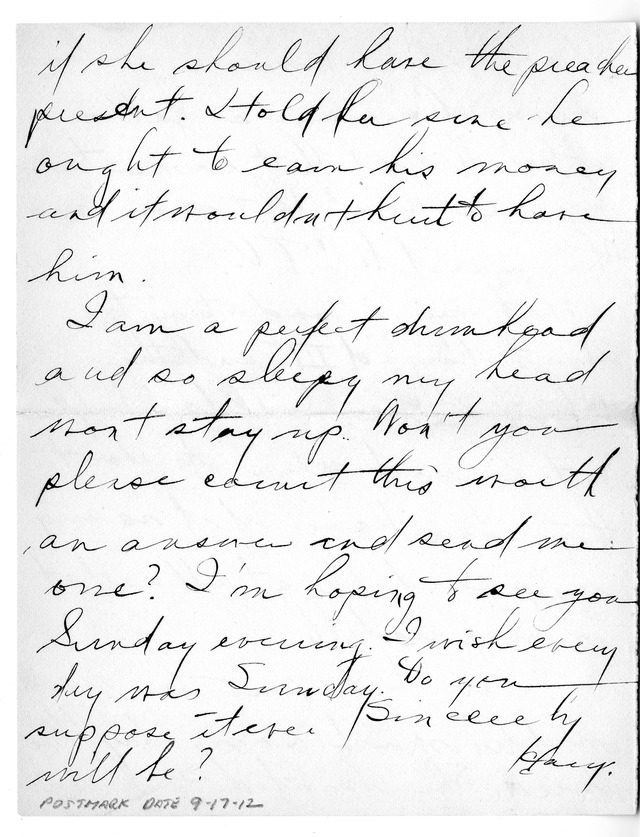 if she should have the preacher
present. I told her sure he
ought to earn his money
and it wouldn't hurt to have
him.
I am a perfect drumhead
and so sleepy my head
won't stay up. Won't you
please count this worth
an answer and send me
one? I'm hoping to see you
Sunday evening. I wish every
day was Sunday. Do you
suppose it ever
will be?
Sincerely
Harry.
POSTMARK DATE 9-17-12